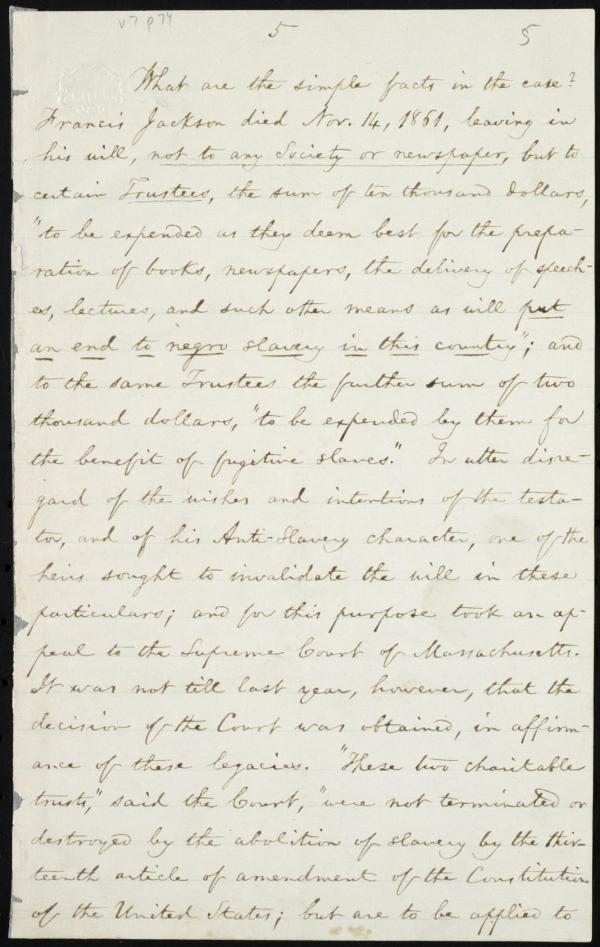 v7 p74
5
5
What are the simple facts in the case?
Francis Jackson died Nov. 14, 1861, leaving in
his will, not to any Society or newspaper, but to
certain Trustees, the sum of ten thousand dollars,
"to be expended as they deem best for the prepa-
ration of books, newspapers, the delivery of speech-
es, lectures, and such other means as will put
an end to negro slavery in this country"; and
to the same Trustees the further sum of two
thousand dollars, "to be expended by them for
the benefit of fugitive slaves." In utter disre-
gard of the wishes and intentions of the testa-
tor, and of his Anti-Slavery character, one of the
heirs sought to invalidate the will in these
particulars; and for this purpose took an ap-
peal to the Supreme Court of Massachusetts.
It was not till last year, however, that the
decision of the Court was obtained, in affirm-
ance of these legacies. "These two charitable
trusts," said the Court, "were not terminated or
destroyed by the abolition of slavery by the thir-
teenth article of amendment of the Constitution
of the United States; but are to be applied to